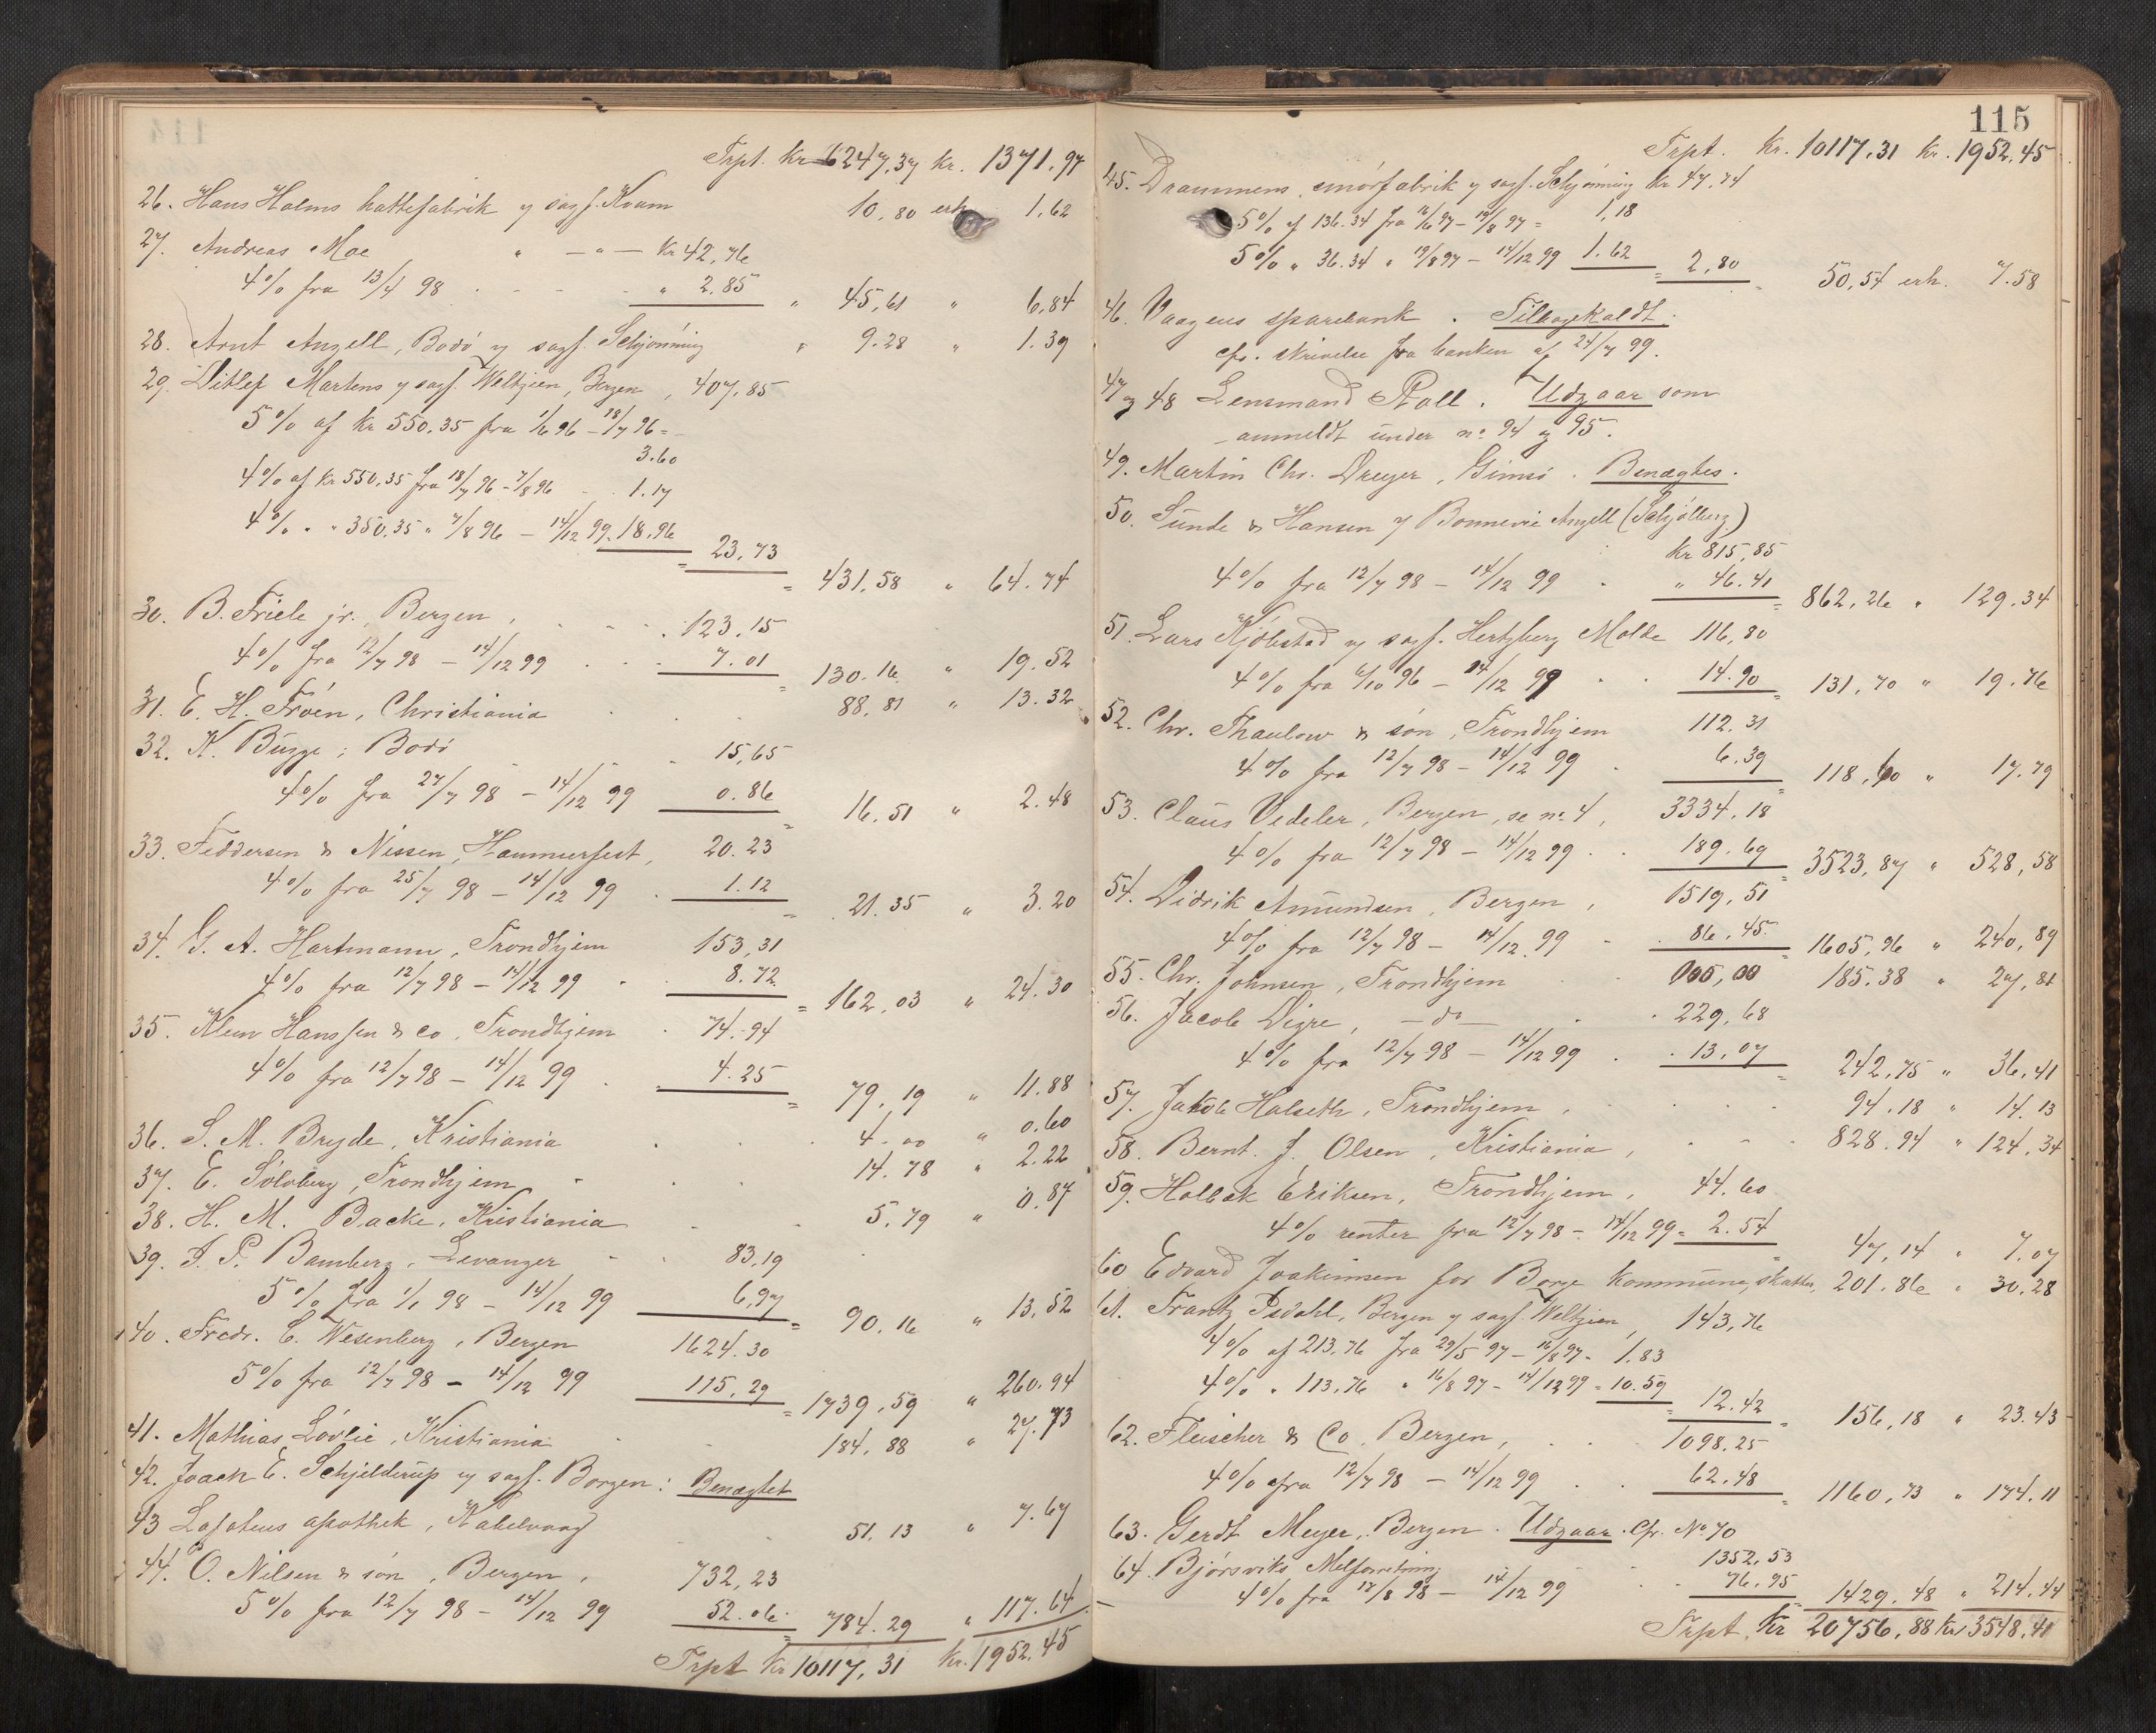 Trpt. Kr 6247,37 kr. 1371.97
26. Hans Holms hattefabrik v sagf. Kvam 10,80 erh. 1,62
27. Andreas Moe " — " — Kr 42,76
4% fra 13/4 98 . - - - " 2.85 " 45,61 " 6,84
28. Arnt Angell, Bodö v sagf. Schjönning " 9.28 " 1.39
29. Ditlef Martens v sagf. Weltzien, Bergen, 407,85
5% af Kr 550.35 fra 1/6 96 – 18/7 96 =
3.60
4% af Kr 550,35 fra 18/7 96 – 7/8 96 . . 1.17
4% " " 350,35 " 7/8 96 – 14/12 99. 18,96
= 23,73
= 431,58 " 64.74
30. B. Friele jr., Bergen, . - - . 123.15
4% fra 12/7 98 – 14/12 99 . . . 7.01
= 130.16 " 19.52
31. E. H. Fröen, Christiania . . . 88,81 " 13.32
32. K. Bugge; Bodö . . . 15,65
4% fra 27/7 98 – 14/12 99 0.86
= 16.51 " 2.48
33. Feddersen & Nissen, Hammerfest, 20.23
4% fra 25/7 98 – 14/12 99 . 1.12
= 21.35 " 3.20
34. G. A. Hartmann, Trondhjem 153,31
4% fra 12/7 98 – 14/12 99 . . 8.72
= 162,03 " 24.30
35. Klem Hanssen & co, Trondhjem . 74.94
4% fra 12/7 98 – 14/12 99 . 4.25
= 79.19 " 11.88
36. S. M. Bryde, Kristiania . . . 4.00 " 0.60
37. E. Solvberg, Trondhjem . . . 14.78 " 2.22
38. H. M. Backe, Kristiania . . 5.79 " 0.87
39. J. P. Bamberg, Levanger - . 83,19
5% fra 1/1 98 – 14/12 99 6,97
= 90.16 " 13,52
40. Fredr. C. Wesenberg, Bergen 1624.30
5% fra 12/7 98 – 14/12 99 115,29
= 1739,59 " 260.94
41. Mathias Lövlie, Kristiania . . 184,88 " 27.73
42. Joach E. Schjelderup v sagf. Borgen: Benægtet
43 Lofotens apothek, Kabelvaag - 51.13 " 7.67
44. O. Nilsen & sön, Bergen, 732,23
5% fra 12/7 98 – 14/12 99 52.06
= 784.29 " 117.64
Trpt Kr 10117,31 Kr. 1952.45
115
Trpt. Kr. 10117.31 Kr. 1952.45
45. Drammens smörfabrik v sagf. Schjönning Kr 47.74
5% af 136.34 fra 16/6 97 – 19/8 97 = 1,18
5% " 36.34 " 19/8 97 – 14/12 99 1.62 = 2,80
50,54 erh. 7.58
46. Vaagens sparebank . Tilbagekaldt.
cfr. skrivelse fra banken af 24/7 99.
47 og 48 Lensmand Roll. Udgaar som
anmeldt under no 94 og 95.
49. Martin Chr. Dreyer, Gimsö. Benægtes.
50. Sunde & Hansen v Bonnevie Angell (Schjölberg)
Kr 815,85
4% fra 12/7 98 – 14/12 99 . " 46.41
= 862,26 " 129.34
51. Lars Kjölestad v sagf. Hertzberg Molde 116,80
4% fra 6/10 96 – 14/12 99 . . 14.90
= 131,70 " 19.76
52. Chr. Thaulow & sön, Trondhjem 112.31
4% fra 12/7 98 – 14/12 99 . 6.39
= 118,60 " 17.79
53. Claus Vedeler, Bergen, se no 4, 3334.18
4% fra 12/7 98 – 14/12 99 . . 189.69
= 3523,87 " 528,58
54. Didrik Amundsen, Bergen, 1519,51
4% fra 12/7 98 – 14/12 99 . 86.45
= 1605,96 " 240,89
55. Chr. Johnsen, Trondhjem . 185.38 " 27,81
56. Jacob Digre, – do – . . 229,68
4% fra 12/7 98 – 14/12 99 . . 13,07
= 242,75 " 36,41
57. Jakob Halseth, Trondhjem, . . . 94.18 " 14.13
58. Bernt. J. Olsen, Kristiania, . - . 828.94 " 124,34
59. Holbæk Eriksen, Trondhjem, 44.60
4% renter fra 12/7 98 – 14/12 99 = 2.54
= 47,14 " 7.07
60 Edvard Joakimsen for Borge kommune, skatter, 201.86 " 30.28
61. Frantz Isdahl, Bergen v sagf. Weltzien, 143,76
4% af 213.76 fra 29/5 97 – 16/8 97 - 1,83
4% " 113,76 " 16/8 97 – 14/12 99 = 10.59
= 12.42
156,18 " 23.43
62. Fleischer & Co, Bergen, . . . 1098.25
4% fra 12/7 98 – 14/12 99 . . 62.48
= 1160,73 " 174.11
63. Gerdt Meyer, Bergen. Udgaar. Cfr. No 70
64. Bjórsviks Melforretning 1352,53
4% fra 12/8 98 – 14/12 99 . . 76.95
= 1429.48 " 214.44
Trpt. Kr 20756,88 Kr 3548.41